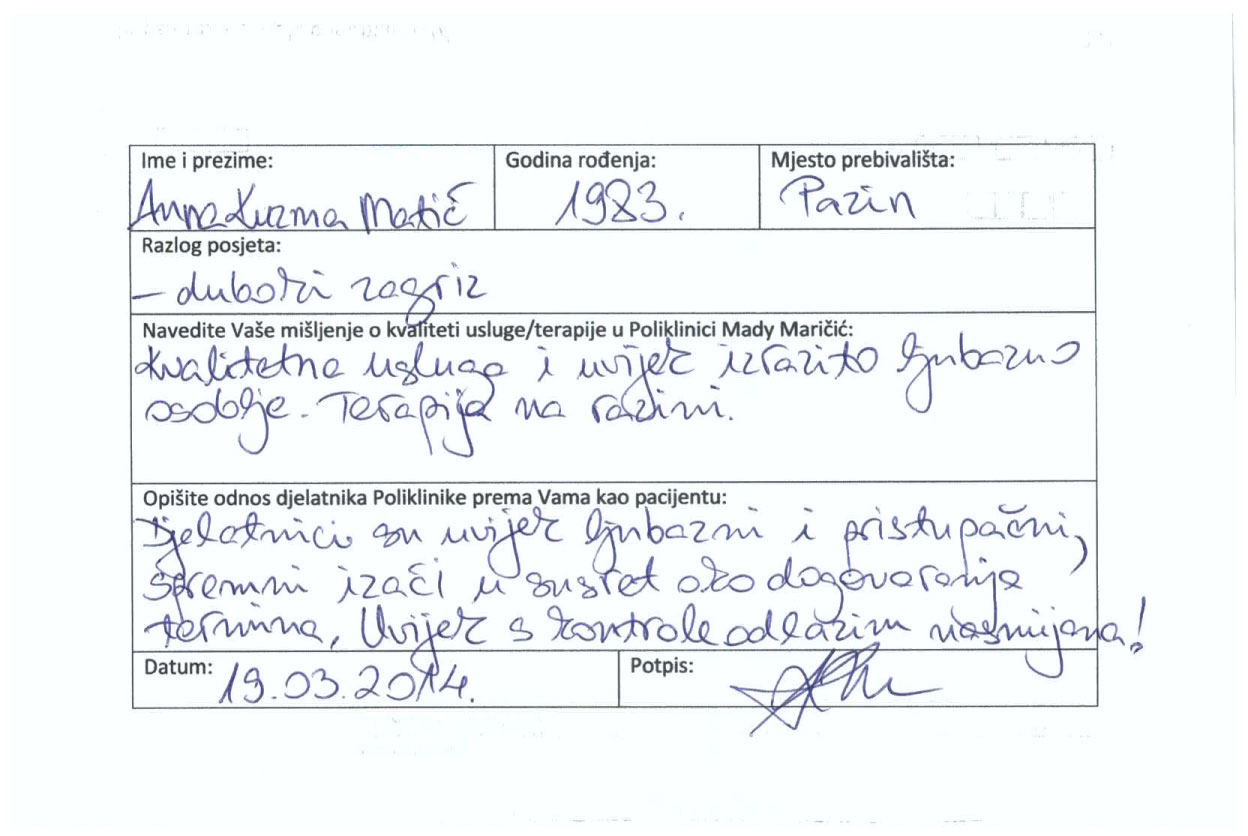 Ime i prezime: Godina rođenja: Mjesto prebivališta:
Anna Kuzma Matić 1983. Pazin
Razlog posjeta:
- duboki zagriz
Navedite Vaše mišljenje o kvaliteti usluge/terapije u Poliklinici Mady Maričić:
Kvalitetna usluga i uvijek izrazito ljubazno
osoblje. Terapija na razini.
Opišite odnos djelatnika Poliklinike prema Vama kao pacijentu:
Djelatnici su uvijek ljubazni i pristupačni,
spremni izaći u susret oko dogovaranja
termina, Uvijek s kontrole odlazim nasmijana!
Datum: 19.03.2014. Potpis: